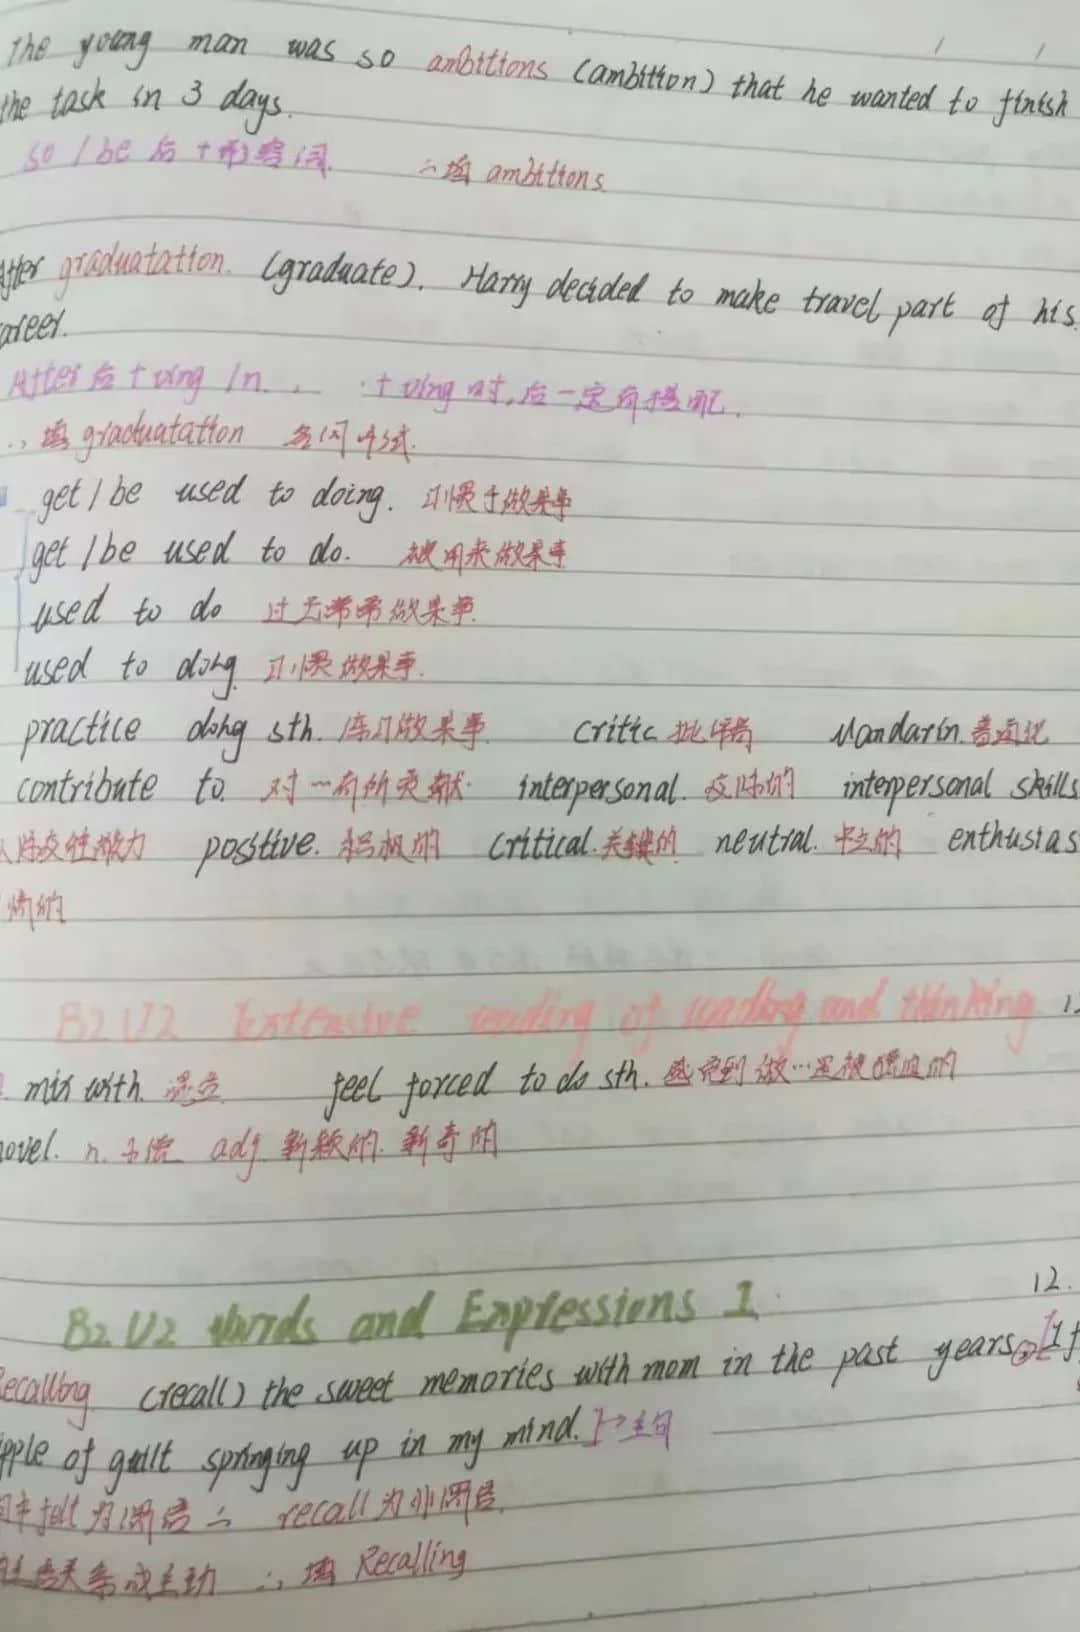 The young man was so ambitions (ambition) that he wanted to finish
the task in 3 days.
so / be 后 + 形容词. ∴填 ambitions.
After graduatation. (graduate). Harry decided to make travel part of his
career.
After 后 + ving / n. + ving 时, 后一定有搭配.
∴填 graduatation 名词形式.
get / be used to doing. 习惯于做某事
get / be used to do. 被用来做某事
used to do 过去常常做某事.
used to doing. 习惯做某事.
practice doing sth. 练习做某事 critic 批评者 Mandarin. 普通话
contribute to. 对…有所贡献. interpersonal. 交际的 interpersonal skills
人际交往能力 positive. 积极的 critical. 关键的 neutral. 中立的 enthusias
情的
B2 U2 Extensive reading of reading and thinking
mix with. 混合 feel forced to do sth. 感觉到做…是被强迫的
novel. n. 小说 adj. 新颖的. 新奇的
12.
B2 U2 Words and Expressions 1
Recalling (recall) the sweet memories with mom in the past years ②[I f
ipple of guilt springing up in my mind.]→主句
felt 为谓语 ∴ recall 为非谓语.
关系成主动 ∴填 Recalling